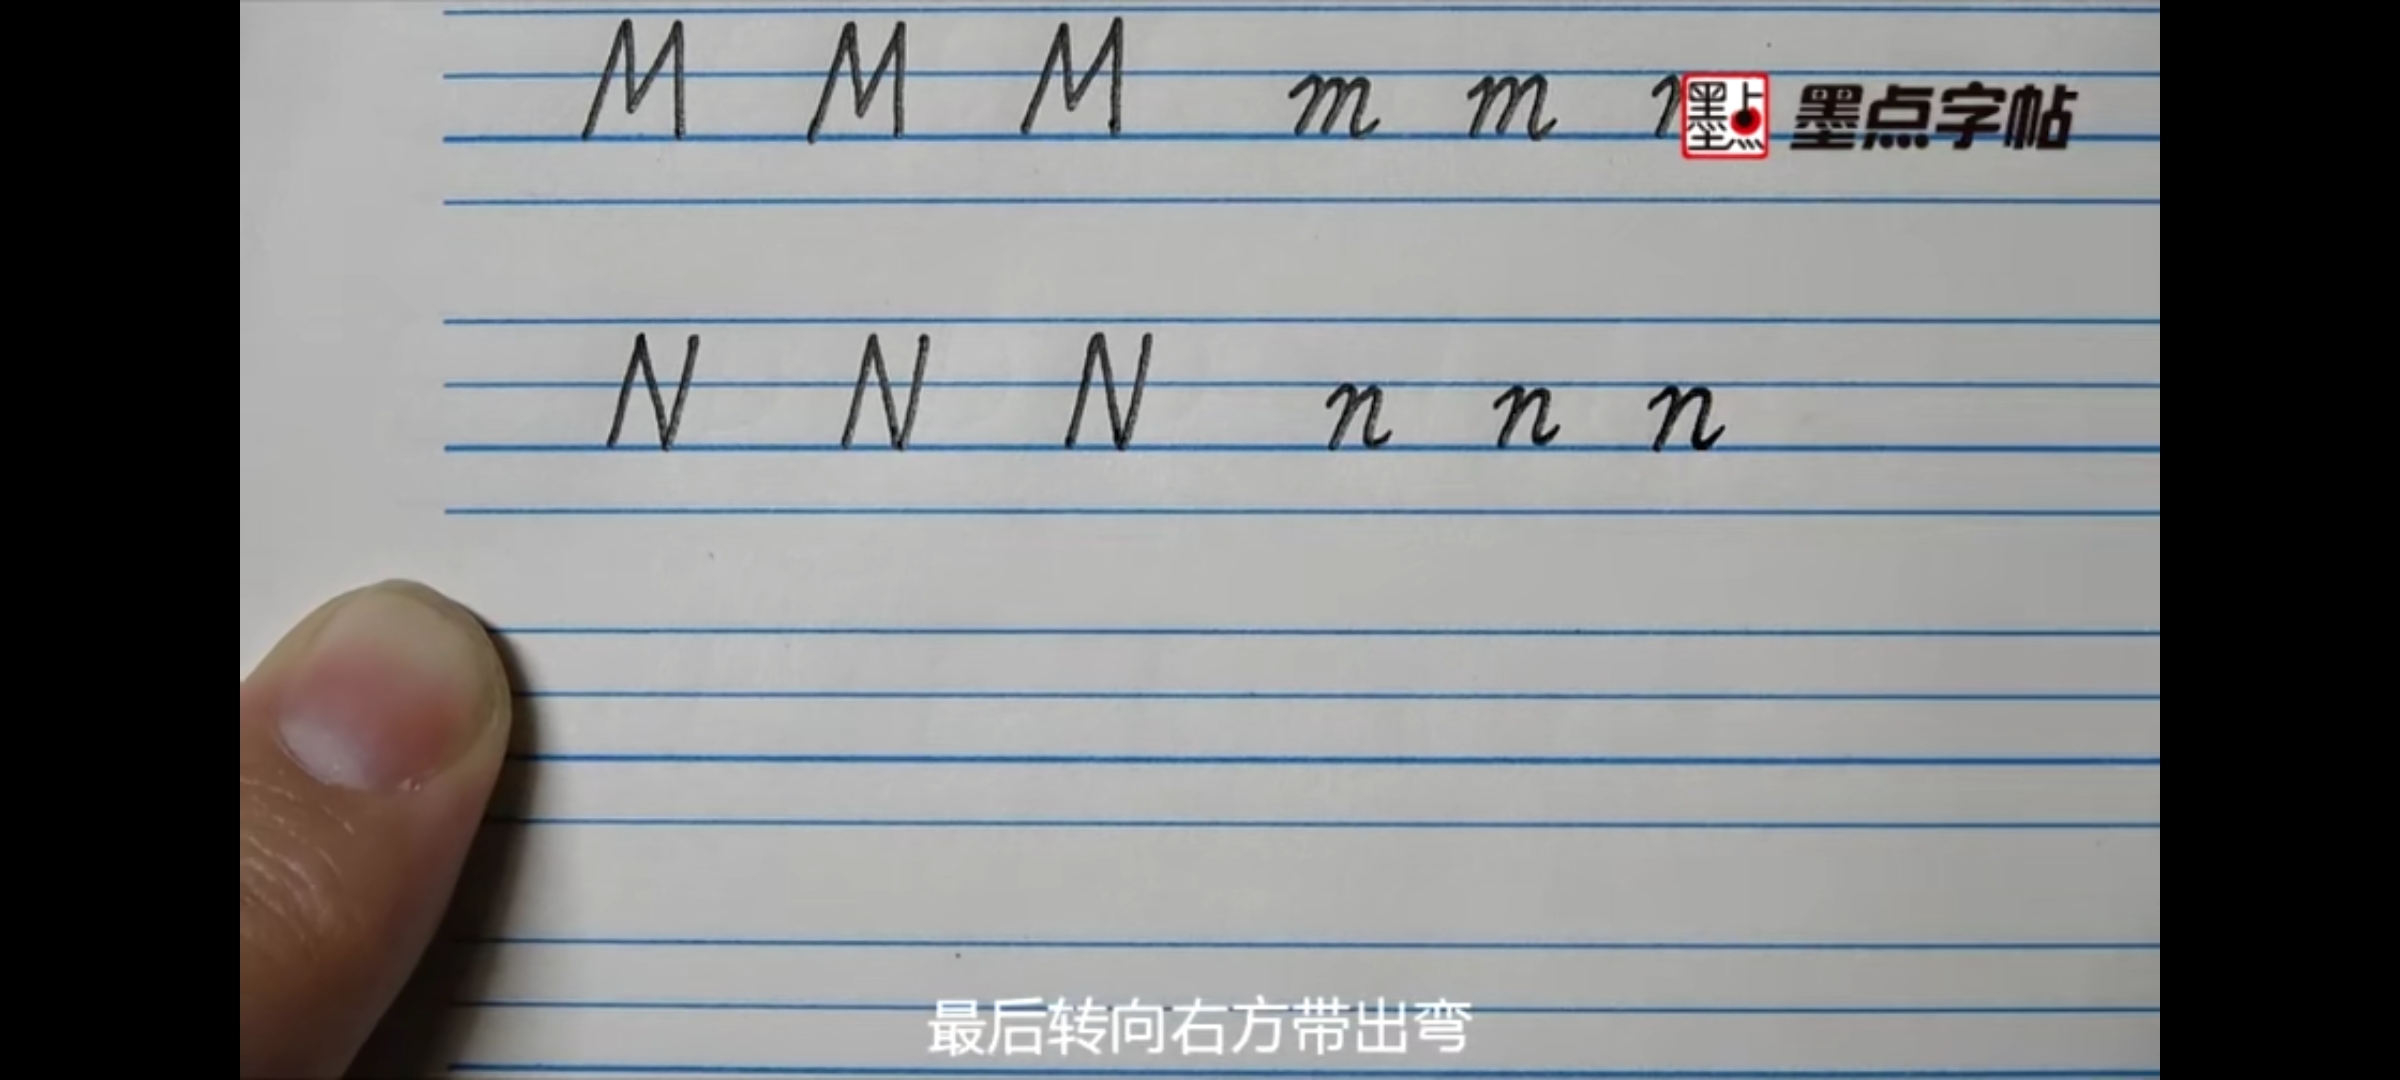 M M M m m
墨点 墨点字帖
N N N n n n
最后转向右方带出弯